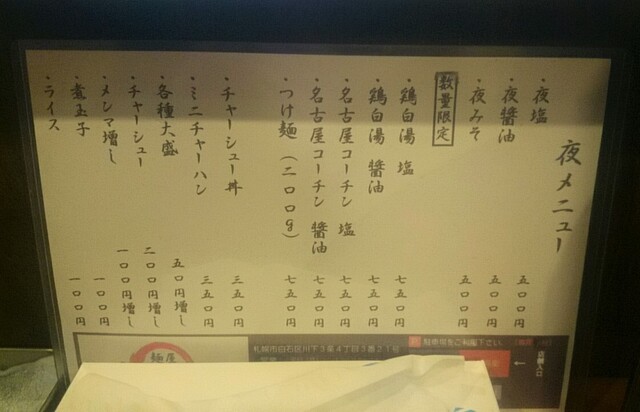 夜メニュー
・夜塩 五〇〇円
・夜醤油 五〇〇円
・夜みそ 五〇〇円
数量限定
・鶏白湯 塩 七五〇円
・鶏白湯 醤油 七五〇円
・名古屋コーチン 塩 七五〇円
・名古屋コーチン 醤油 七五〇円
・つけ麺(二〇〇g) 七五〇円
・チャーシュー丼 三五〇円
・ミニチャーハン 三五〇円
・各種大盛 五〇円増し
・チャーシュー 二〇〇円増し
・メンマ増し 一〇〇円増し
・煮玉子 一〇〇円
・ライス 一〇〇円
麺屋
札幌市白石区川下3条4丁目3番21号
駐車場をご利用下さい。
店舗入口